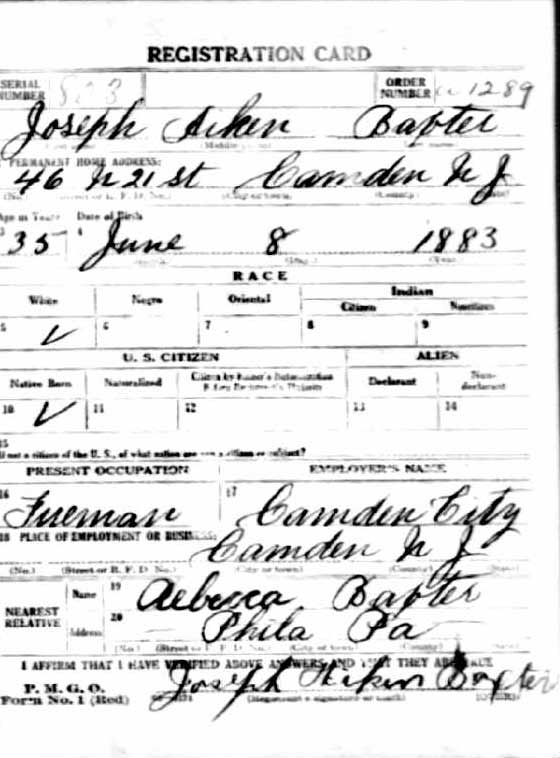 REGISTRATION CARD
SERIAL NUMBER 803 ORDER NUMBER a 1289
Joseph Aiken Baxter
PERMANENT HOME ADDRESS:
46 N 21 st Camden N J
(No.) (Street or R. F. D. No.) (City or town) (County) (State)
Age in Years Date of Birth
35 June 8 1883
(Month) (Day) (Year)
RACE
White Negro Oriental Indian
Citizen Noncitizen
5 ✓ 6 7 8 9
U. S. CITIZEN ALIEN
Native Born Naturalized Citizen by Father's Naturalization Declarant Non-declarant
10 ✓ 11 12 13 14
15
If not a citizen of the U. S., of what nation are you a citizen or subject?
PRESENT OCCUPATION EMPLOYER'S NAME
16 Fireman 17 Camden City
18 PLACE OF EMPLOYMENT OR BUSINESS:
Camden N J
(No.) (Street or R. F. D. No.) (City or town) (County) (State)
NEAREST RELATIVE Name 19 Rebecca Baxter
Address 20 Phila Pa
(No.) (Street or R. F. D. No.) (City or town) (County) (State)
I AFFIRM THAT I HAVE VERIFIED ABOVE ANSWERS AND THAT THEY ARE TRUE
P. M. G. O.
Form No. 1 (Red) Joseph Aiken Baxter
(Registrant's signature or mark) (OVER)